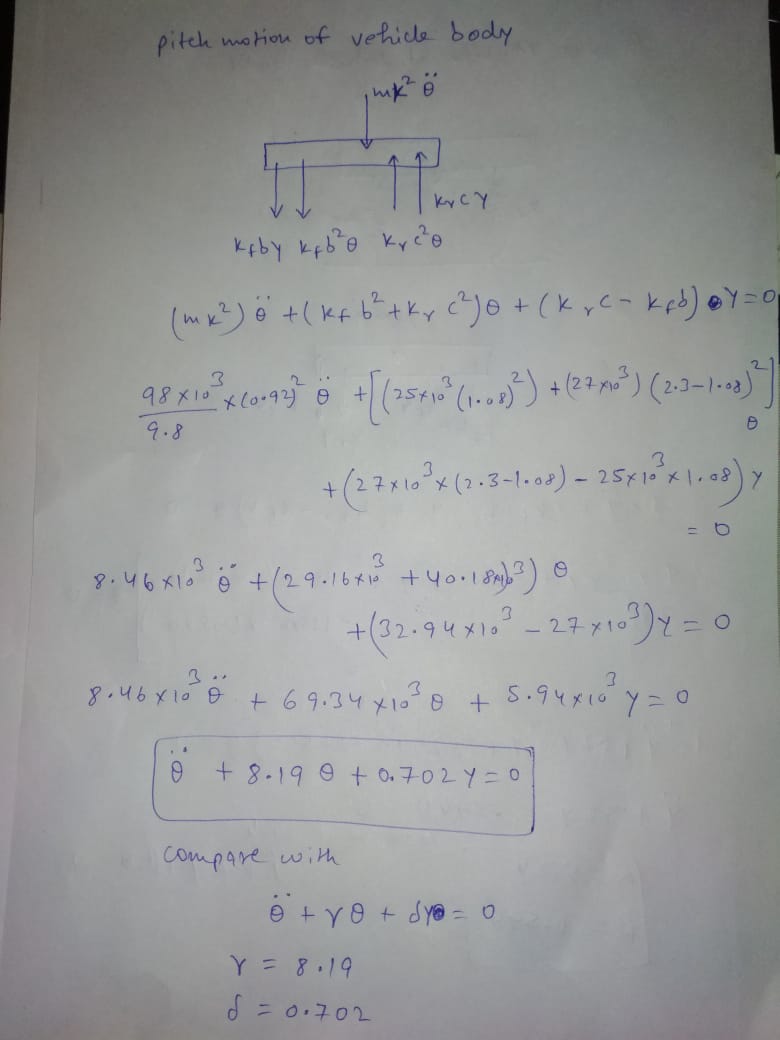 pitch motion of vehicle body
mk² θ̈
krcy
kfby kfb²θ krc²θ
(mk²) θ̈ + (kf b² + kr c²)θ + (krc - kfb) y = 0
98×10³/9.8 ×(0.92)² θ̈ + [(25×10³(1.08)²) + (27×10³) (2.3-1.08)²] θ
+ (27×10³×(2.3-1.08) - 25×10³×1.08) y
= 0
8.46×10³ θ̈ + (29.16×10³ + 40.18×10³) θ
+(32.94×10³ - 27×10³) y = 0
8.46×10³ θ̈ + 69.34×10³ θ + 5.94×10³ y = 0
θ̈ + 8.19 θ + 0.702 y = 0
compare with
θ̈ + γθ + δy = 0
γ = 8.19
δ = 0.702